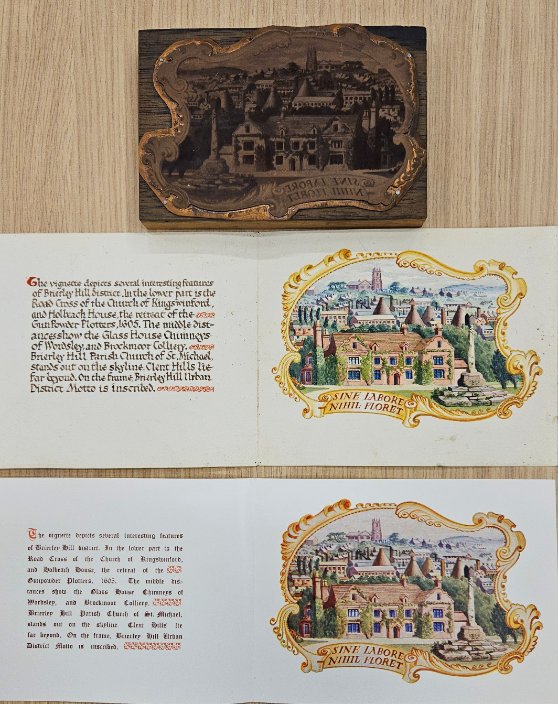 SINE LABORE
NIHIL FLORET
The vignette depicts several interesting features
of Brierley Hill district. In the lower part is the
Road Cross of the Church of Kingswinford,
and Holbach House, the retreat of the
Gunpowder Plotters, 1605. The middle dist-
ances show the Glass House Chimneys
of Wordsley, and Brockmoor Colliery.
Brierley Hill Parish Church of St. Michael,
stands out on the skyline. Clent Hills lie
far beyond. On the frame Brierley Hill Urban
District Motto is inscribed.
SINE LABORE
NIHIL FLORET
The vignette depicts several interesting features
of Brierley Hill district. In the lower part is the
Road Cross of the Church of Kingswinford,
and Holbeach House, the retreat of the
Gunpowder Plotters, 1605. The middle dis-
tances show the Glass House Chimneys of
Wordsley, and Brockmoor Colliery.
Brierley Hill Parish Church of St. Michael,
stands out on the skyline. Clent Hills lie
far beyond. On the frame, Brierley Hill Urban
District Motto is inscribed.
SINE LABORE
NIHIL FLORET